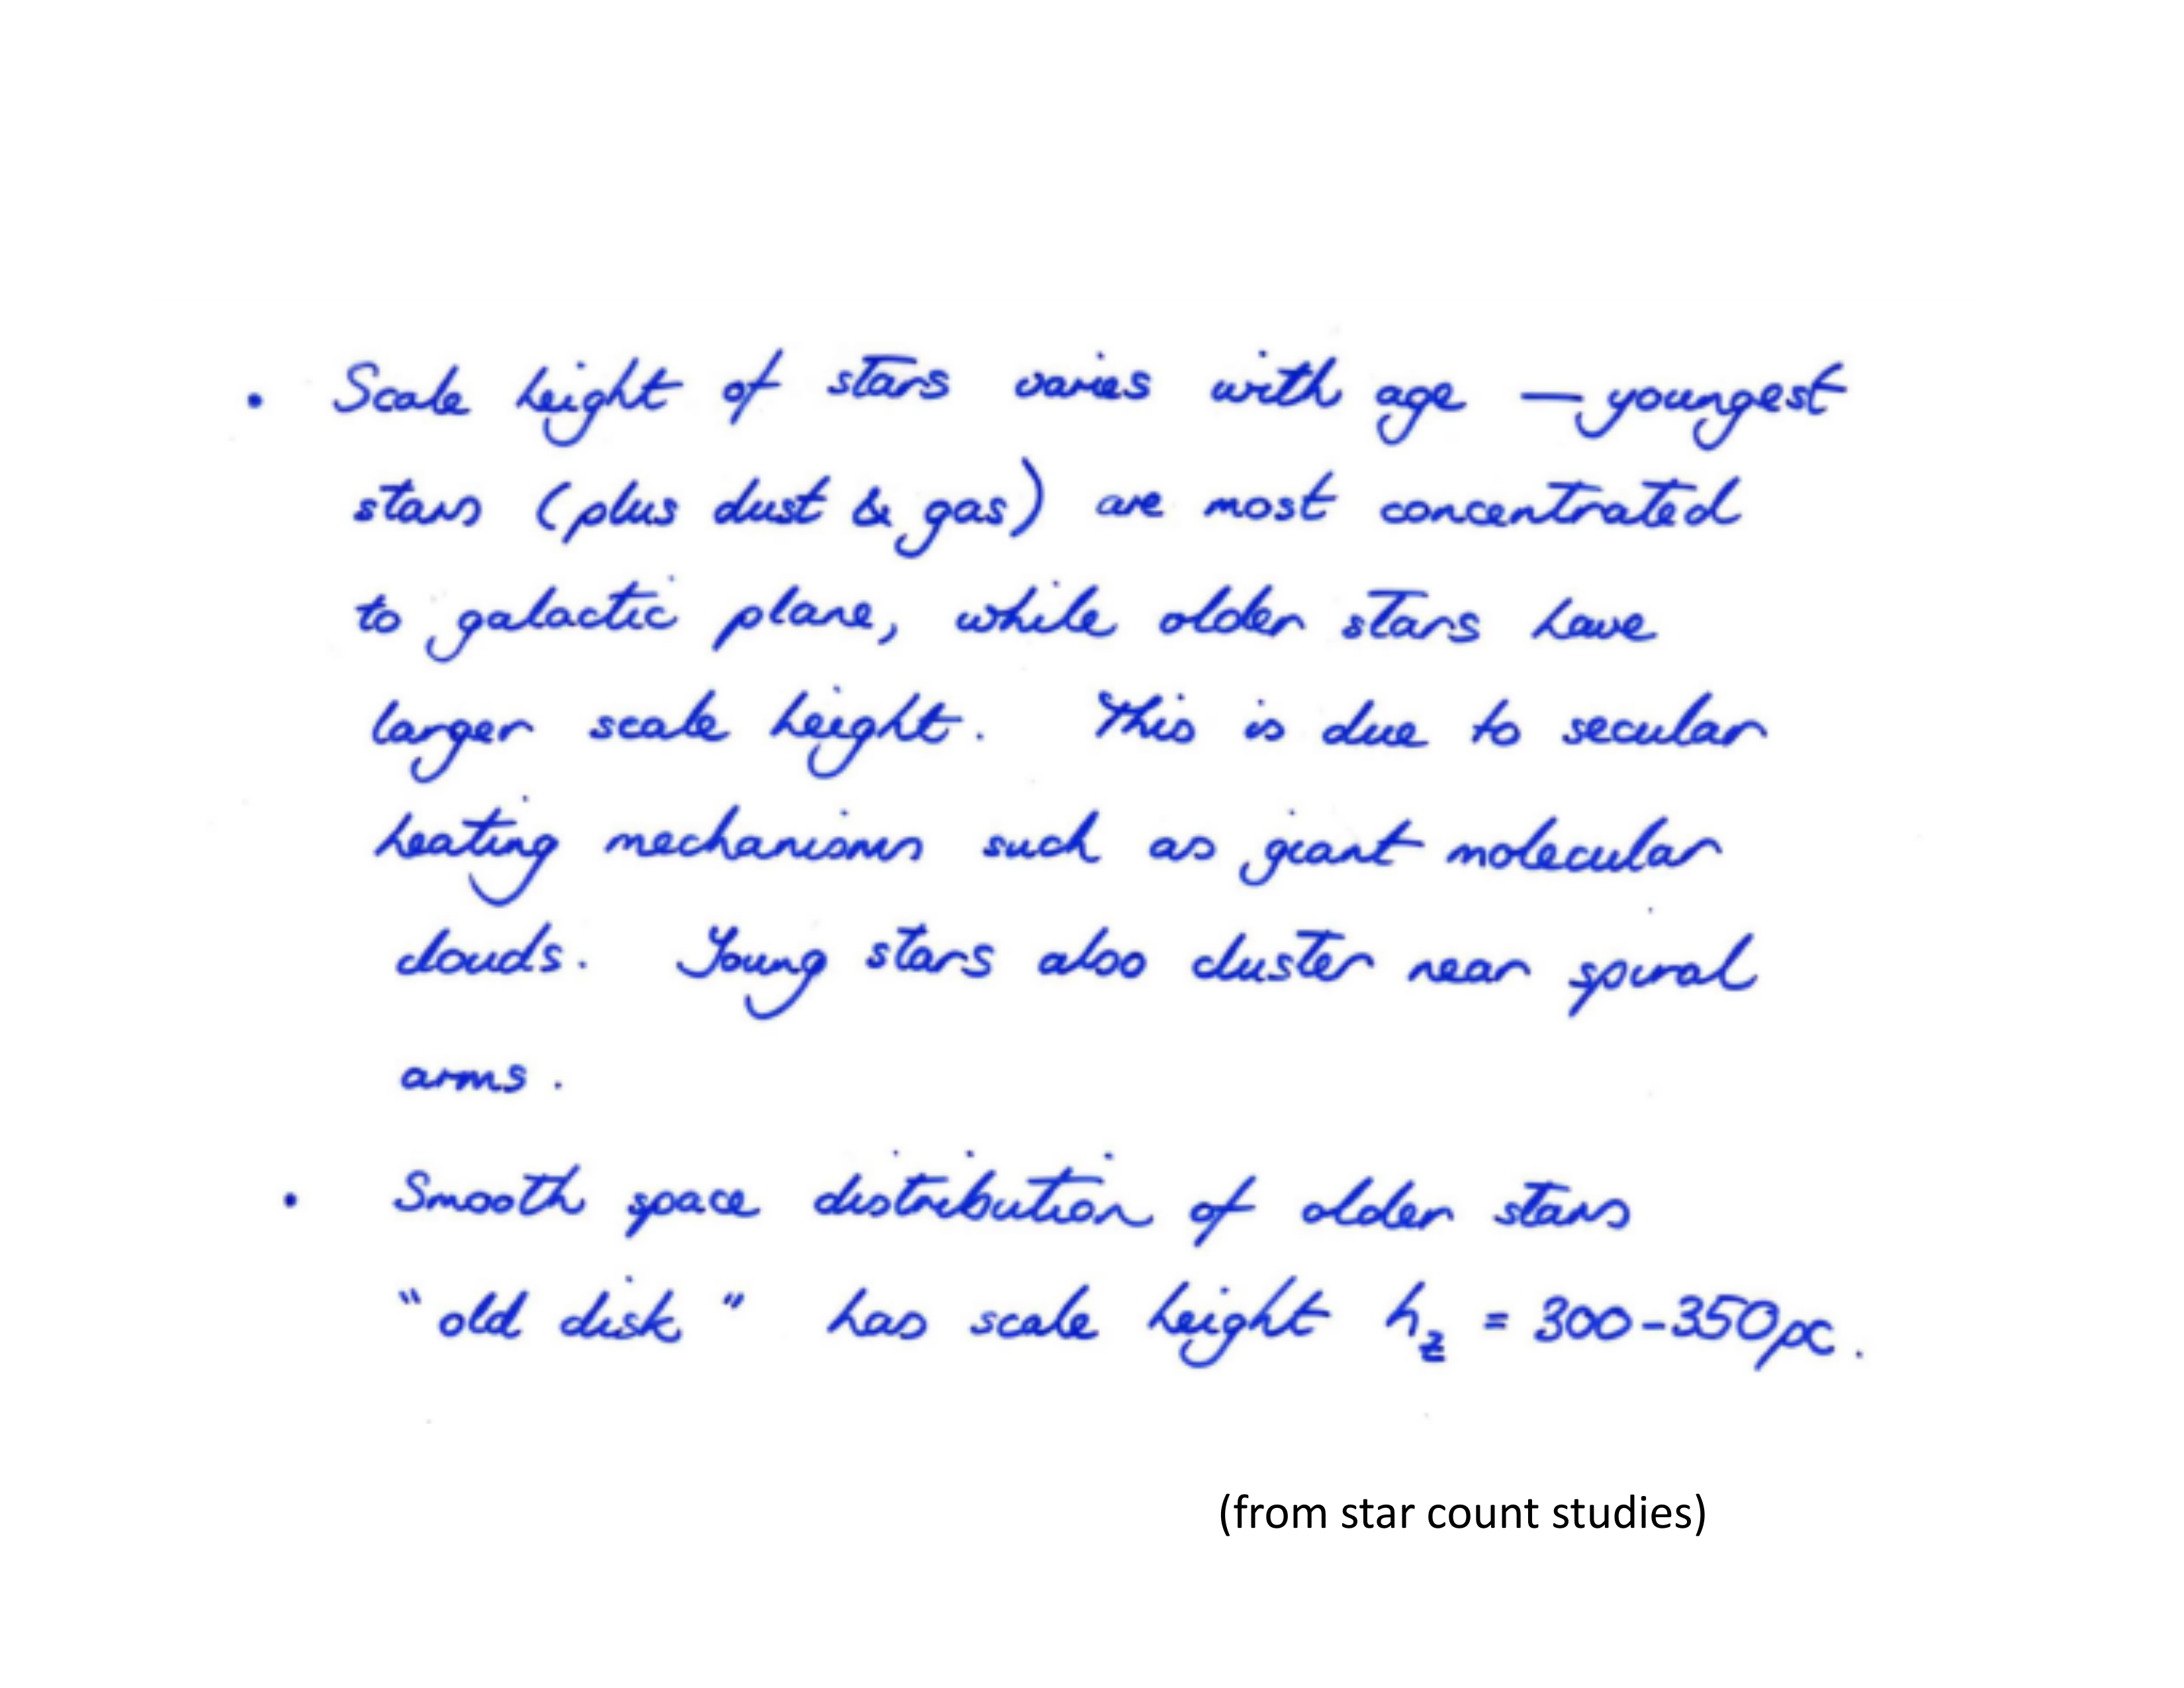 • Scale height of stars varies with age — youngest
stars (plus dust & gas) are most concentrated
to galactic plane, while older stars have
larger scale height. This is due to secular
heating mechanisms such as giant molecular
clouds. Young stars also cluster near spiral
arms.
• Smooth space distribution of older stars
"old disk" has scale height h_z = 300-350pc.
(from star count studies)